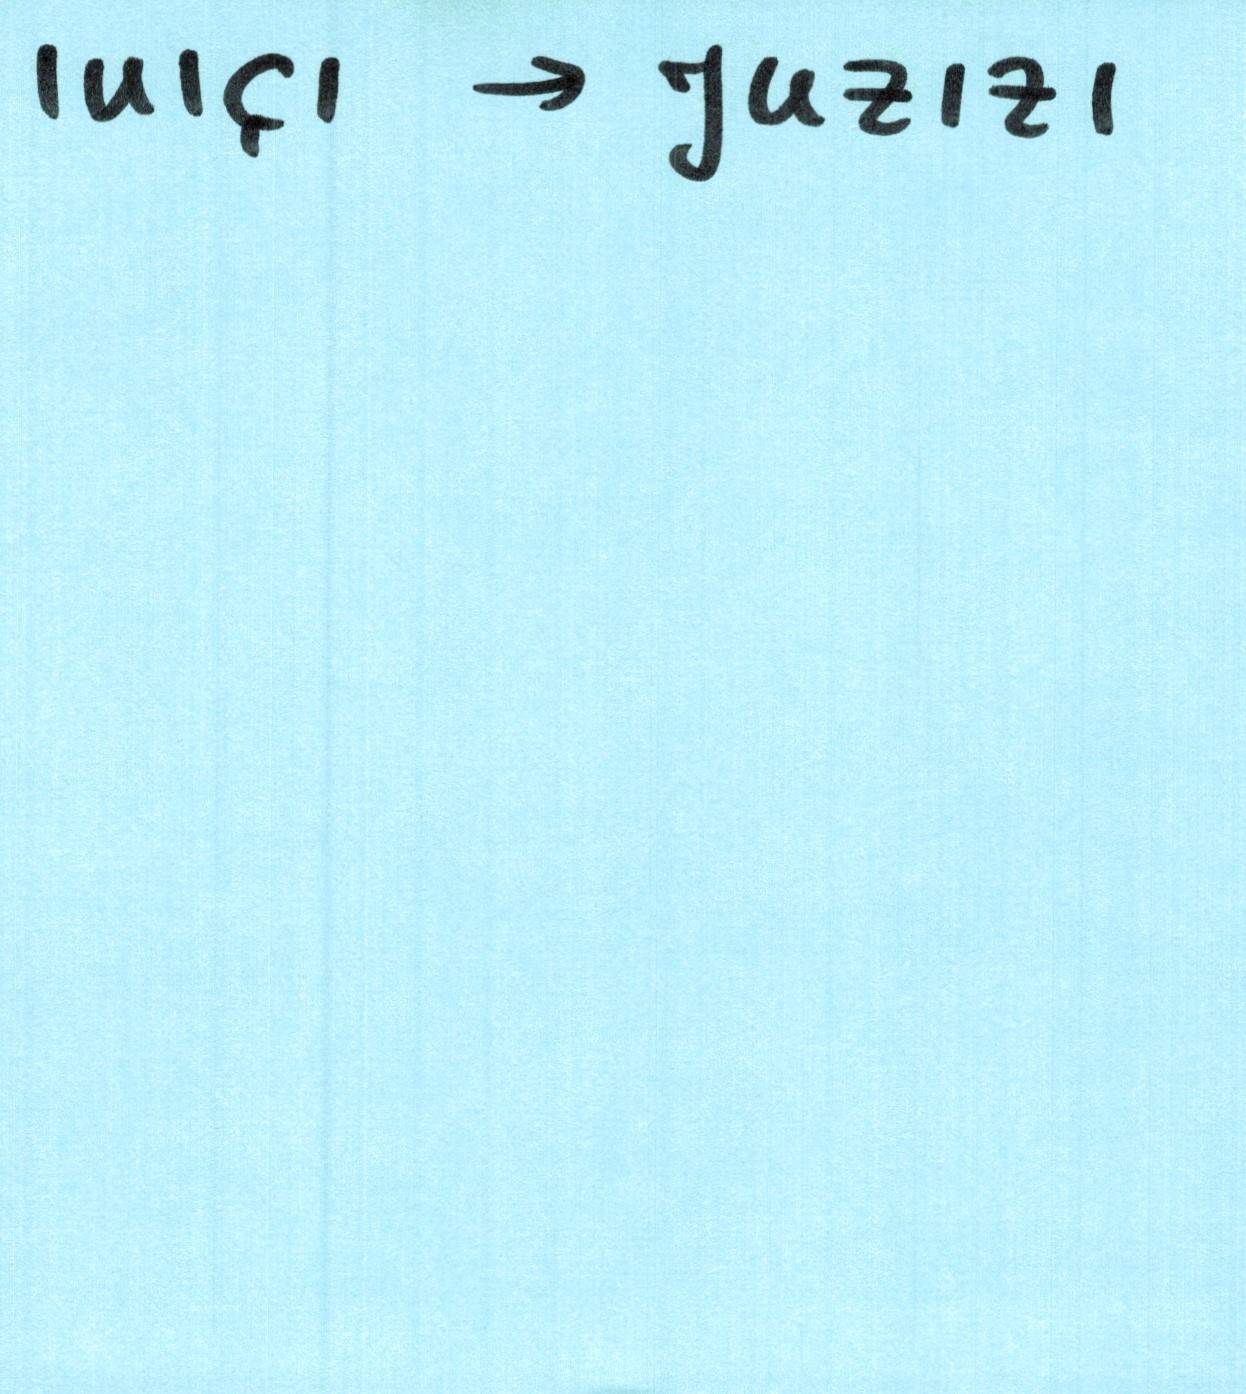 ıuıçı → Juzızı